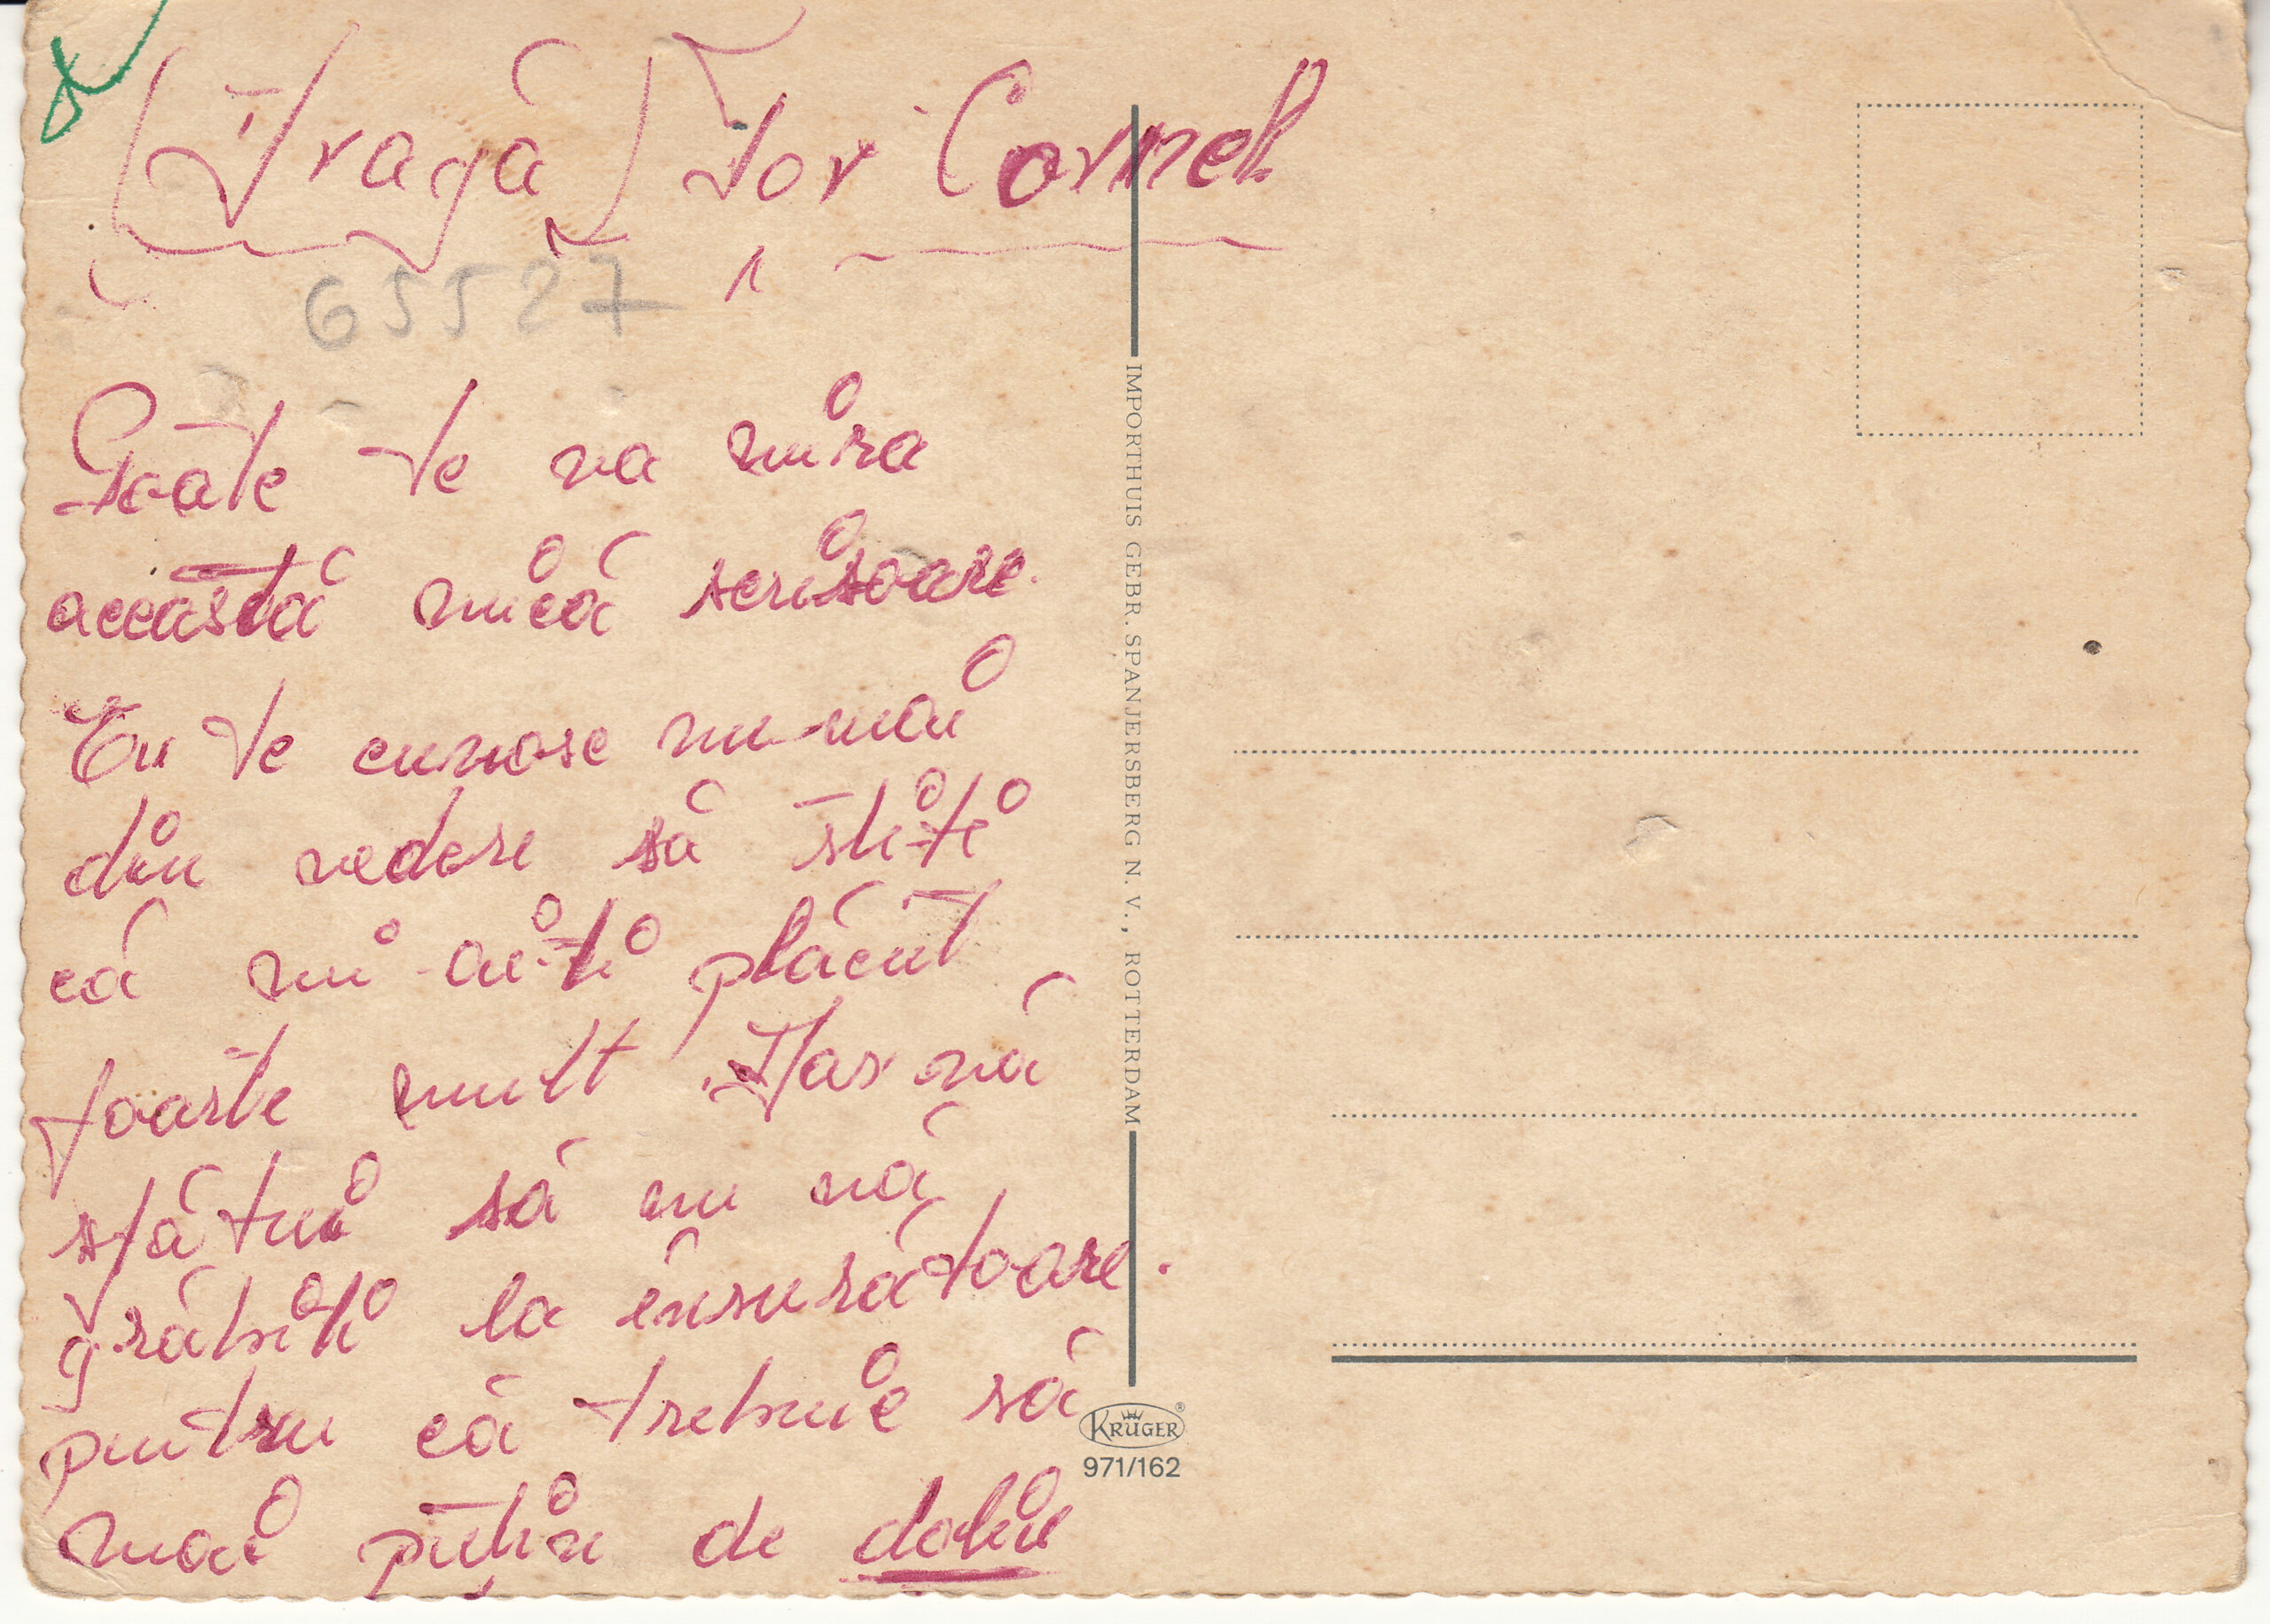 Dragă Dor Cornel
65527
Poate te va mira
această mică scrisoare.
Eu te cunosc numai
din vedere să știți
că mi-ați plăcut
foarte mult. Dar vă
sfătui să nu vă
grăbiți la însurătoare.
pentru că trebuie să
mai puțin de
IMPORTHUIS GEBR. SPANJERSBERG N.V., ROTTERDAM
KRÜGER®
971/162